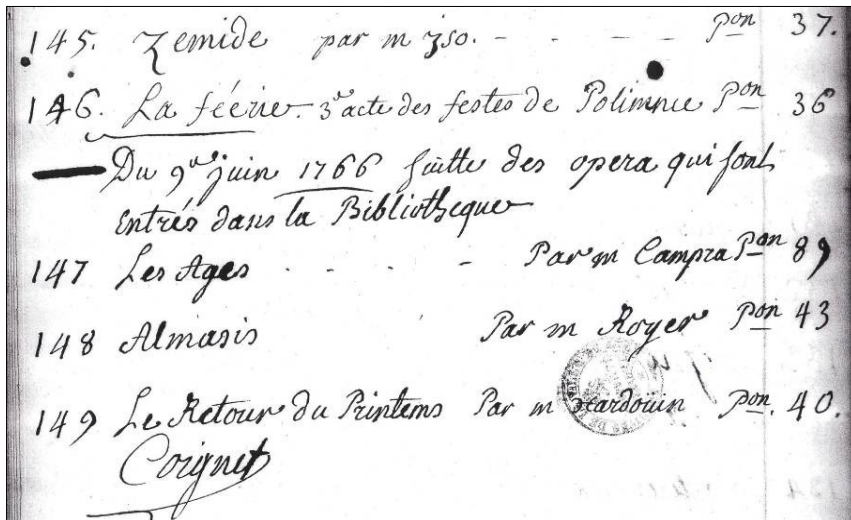 145. Zemide par m izo. - - - - pon 37.
146. La féerie. 3e acte des festes de Polimnie Pon 36
Du 9me juin 1766 suitte des opera qui sont
Entrés dans la Bibliotheque
147 Les Ages - - - - Par m Campra Pon 89
148 Almasis Par m Royer Pon 43
149 Le Retour du Printems Par m hardouin Pon. 40.
Coignet